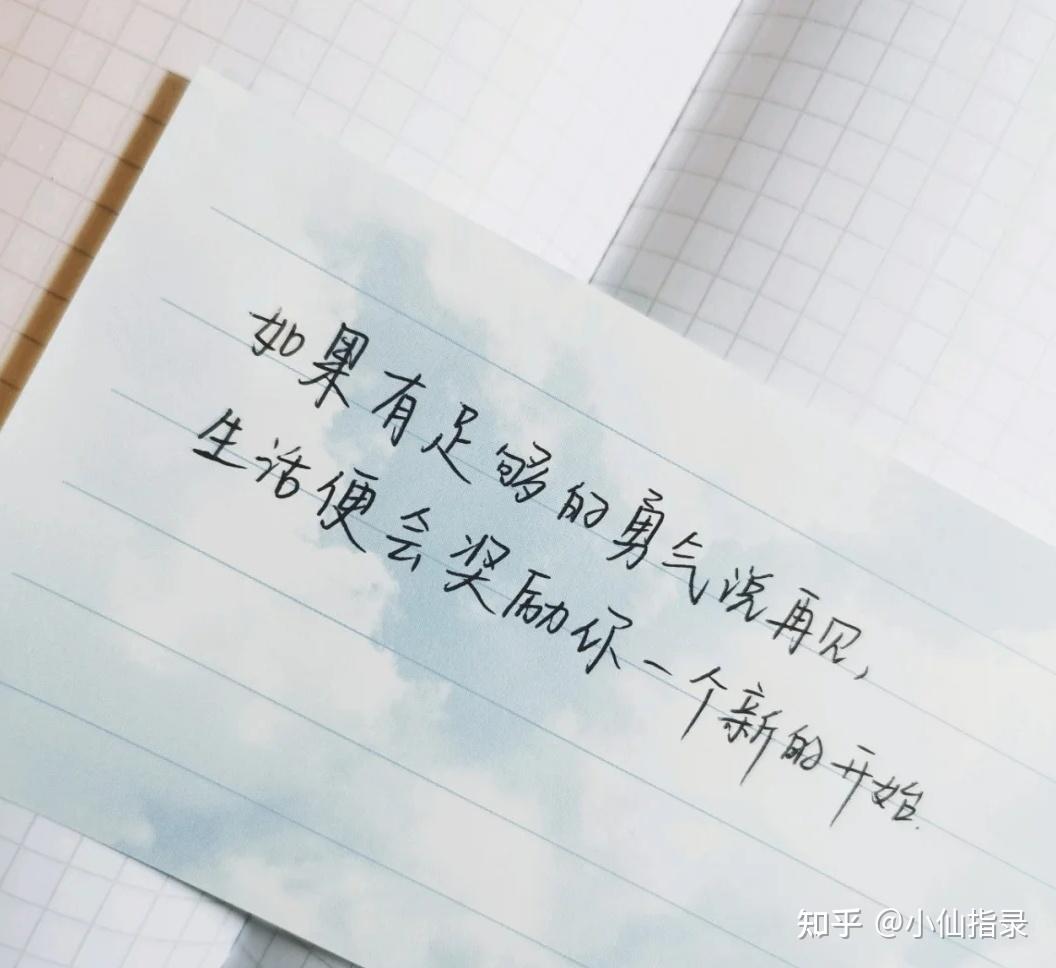 如果有足够的勇气说再见,
生活便会奖励你一个新的开始.
知乎 @小仙指录